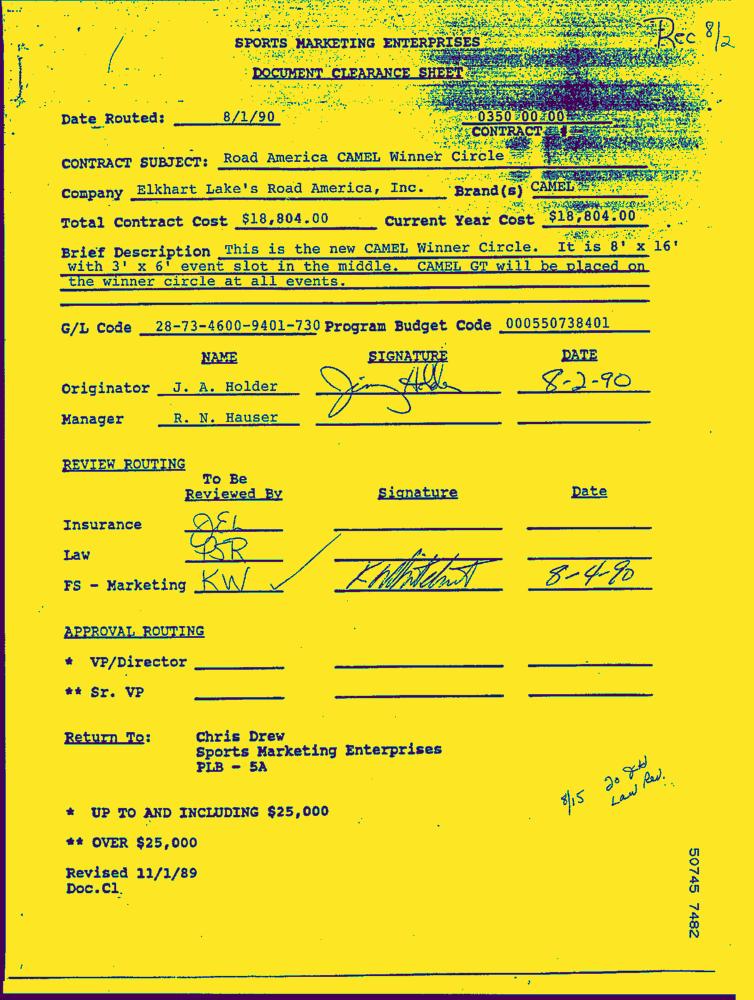 Rec 8/2
SPORTS MARKETING ENTERPRISES
DOCUMENT CLEARANCE SHEET
Date Routed: 8/1/90 0350 00 00
CONTRACT #
CONTRACT SUBJECT: Road America CAMEL Winner Circle
Company Elkhart Lake's Road America, Inc. Brand(s) CAMEL
Total Contract Cost $18,804.00 Current Year Cost $18,804.00
Brief Description This is the new CAMEL Winner Circle. It is 8' x 16'
with 3' x 6' event slot in the middle. CAMEL GT will be placed on
the winner circle at all events.
G/L Code 28-73-4600-9401-730 Program Budget Code 000550738401
NAME SIGNATURE DATE
Originator J. A. Holder Jim Holder 8-2-90
Manager R. N. Hauser
REVIEW ROUTING
To Be
Reviewed By Signature Date
Insurance JEL
Law PBR
FS - Marketing KW 8-4-90
APPROVAL ROUTING
* VP/Director
** Sr. VP
Return To: Chris Drew
Sports Marketing Enterprises
PLB - 5A
8/15 Law Rev.
* UP TO AND INCLUDING $25,000
** OVER $25,000
Revised 11/1/89
Doc.Cl.
50745 7482